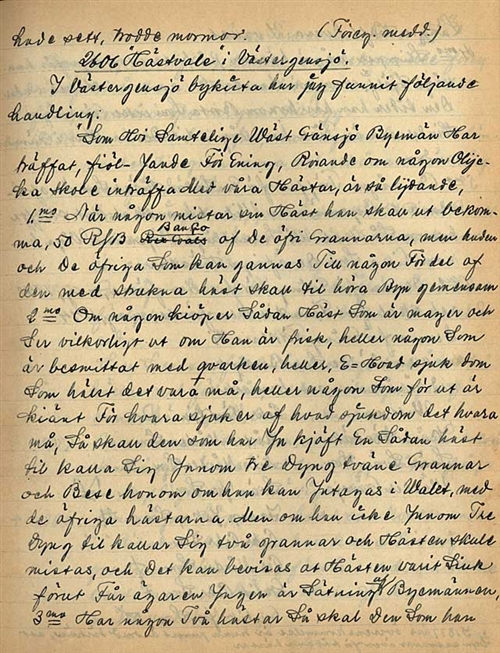 hade sett, trodde mormor. (Föreg. medd.)
2606 "Hästvale" i Västergensjö.
I Västergensjö bykista har jag funnit följande
handling:
"Som Hoi Samtelige Wäst Gänsjö Byemän Har
träffat, fiöl- Jande För Ening, Rörande om någon Olije-
ka skole inträffa Med våra Hästar, är så lijdande,
1mo När någon mistar sin Häst han skall ut bekom-
ma, 50 R/B Banco af De öfri Grannarna, men huden
och De öfriga Som kan gannas Till någon För del af
den med strukna häst skall til höra Byn gemensam
2mo Om någon kiöper Sådan Häst Som är mager och
Ser vilkorligt ut om Han är frisk, heller någon Som
är besmittat med qvarken, heller, E= Hvad sjuk dom
Som hälst det vara må, heller någon Som för ut är
kiänt För hvara sjuker af hvad sjukdom det hvara
må, Så skall den som har Jn kjöft En Sådan häst
til kalla Sig Jnnom tre Dyng tväne Grannar
och Bese honom om han kan Jntagas i Walet, med
de öfriga hästarna Men om han icke Jnnom Tre
Dyng til kallar Sig två grannar och Hästen skulle
mistas, och Det kan bevisas at Hästen varit Siuk
förut Får ägaren Jngen är Sätning af Byemännen,
3mo Har någon Två hästar Så skal Den Som han